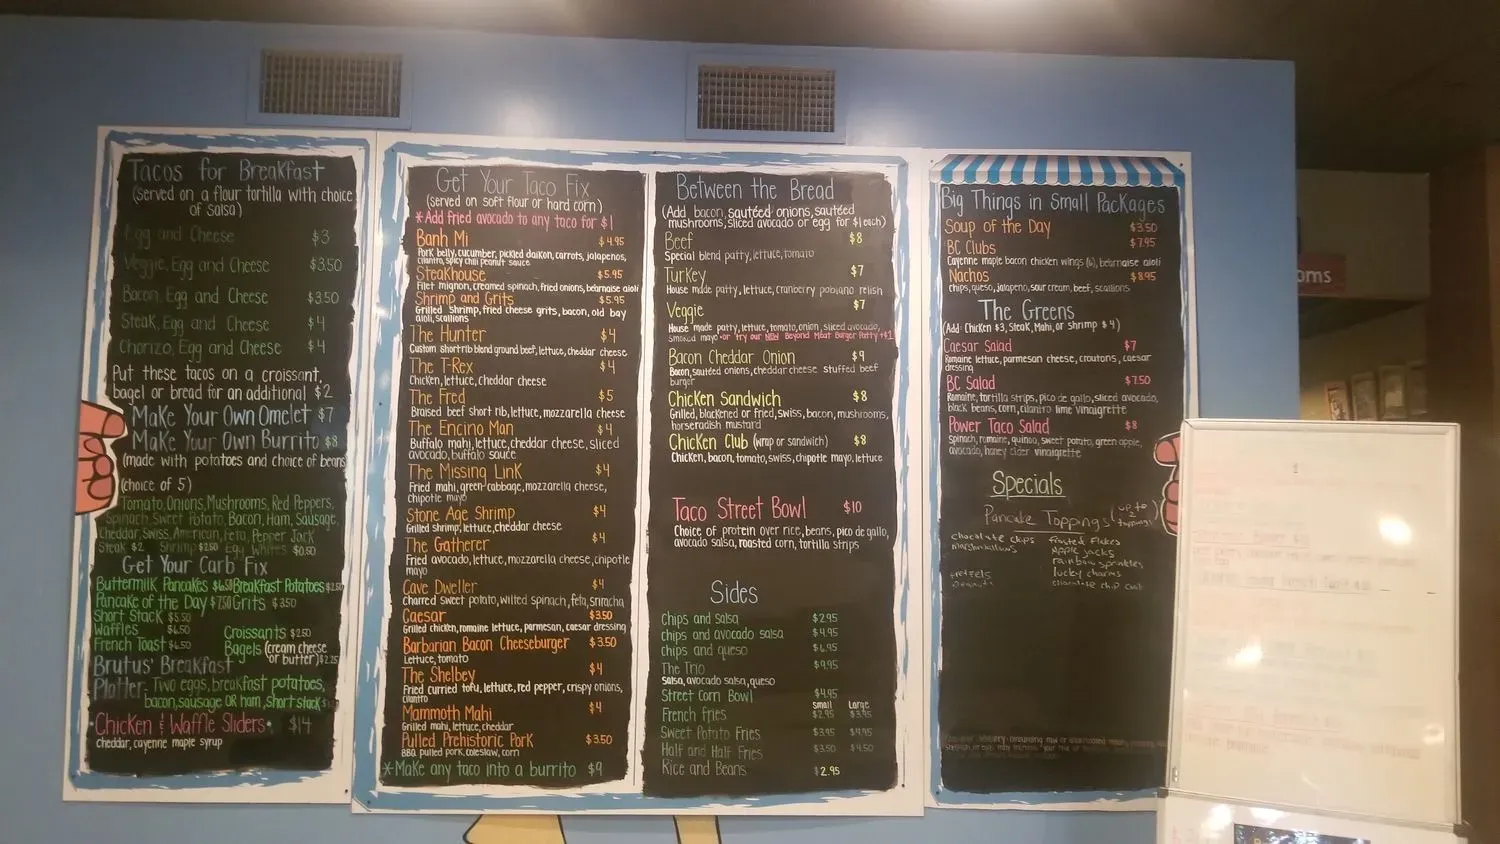 Tacos for Breakfast
(served on a flour tortilla with choice
of salsa)
Egg and Cheese $3
Veggie, Egg and Cheese $3.50
Bacon, Egg and Cheese $3.50
Steak, Egg and Cheese $4
Chorizo, Egg and Cheese $4
Put these tacos on a croissant,
bagel or bread for an additional $2
Make Your Own Omelet $7
Make Your Own Burrito $8
(made with potatoes and choice of beans)
(choice of 5)
Tomato, Onions, Mushrooms, Red Peppers,
Spinach Sweet Potato, Bacon, Ham, Sausage,
Cheddar, Swiss, American, Feta, Pepper Jack
Steak $2 Shrimp $2.50 Egg Whites $0.50
Get Your Carb Fix
Buttermilk Pancakes $6.50 Breakfast Potatoes
Pancake of the Day $7.50 Grits $3.50
Short Stack $5.50
Waffles $6.50 Croissants $2.50
French Toast $6.50 Bagels (cream cheese
or butter) $2.25
Brutus' Breakfast
Platter- Two eggs, breakfast potatoes,
bacon, sausage OR ham, short stack
Chicken & Waffle Sliders $14
cheddar, cayenne maple syrup
Get Your Taco Fix
(served on soft flour or hard corn)
*Add fried avocado to any taco for $1
Banh Mi $4.95
Pork belly, cucumber, pickled daikon, carrots, jalapenos,
cilantro, spicy chili peanut sauce
Steakhouse $5.95
Filet mignon, creamed spinach, fried onions, bearnaise aioli
Shrimp and Grits $5.95
Grilled shrimp, fried cheese grits, bacon, old bay
aioli, scallions
The Hunter $4
Custom shortrib blend ground beef, lettuce, cheddar cheese
The T-Rex $4
Chicken, lettuce, cheddar cheese
The Fred $5
Braised beef short rib, lettuce, mozzarella cheese
The Encino Man $4
Buffalo mahi, lettuce, cheddar cheese, sliced
avocado, buffalo sauce
The Missing Link $4
Fried mahi, green cabbage, mozzarella cheese,
chipotle mayo
Stone Age Shrimp $4
Grilled shrimp, lettuce, cheddar cheese
The Gatherer $4
Fried avocado, lettuce, mozzarella cheese, chipotle
mayo
Cave Dweller $4
Charred sweet potato, wilted spinach, feta, sriracha
Caesar $3.50
Grilled chicken, romaine lettuce, parmesan, caesar dressing
Barbarian Bacon Cheeseburger $3.50
Lettuce, tomato
The Shelbey $4
Fried curried tofu, lettuce, red pepper, crispy onions,
cilantro
Mammoth Mahi $4
Grilled mahi, lettuce, cheddar
Pulled Prehistoric Pork $3.50
BBQ pulled pork, coleslaw, corn
*Make any taco into a burrito $9
Between the Bread
(Add bacon, sautéed onions, sautéed
mushrooms, sliced avocado or egg for $1 each)
Beef $8
Special blend patty, lettuce, tomato
Turkey $7
House made patty, lettuce, cranberry poblano relish
Veggie $7
House made patty, lettuce, tomato, onion, sliced avocado,
smoked mayo -or try our NEW Beyond Meat Burger Patty +$1
Bacon Cheddar Onion $9
Bacon, sautéed onions, cheddar cheese stuffed beef
burger
Chicken Sandwich $8
Grilled, blackened or fried, swiss, bacon, mushrooms,
horseradish mustard
Chicken Club (wrap or sandwich) $8
Chicken, bacon, tomato, swiss, chipotle mayo, lettuce
Taco Street Bowl $10
Choice of protein over rice, beans, pico de gallo,
avocado salsa, roasted corn, tortilla strips
Sides
Chips and salsa $2.95
chips and avocado salsa $4.95
chips and queso $6.95
The Trio $9.95
salsa, avocado salsa, queso
Street Corn Bowl $4.95
Small Large
French Fries $2.95 $3.95
Sweet Potato Fries $3.95 $4.95
Half and Half Fries $3.50 $4.50
Rice and Beans $2.95
Big Things in Small Packages
Soup of the Day $3.50
BC Clubs $7.95
Cayenne maple bacon chicken wings (6), bearnaise aioli
Nachos $8.95
chips, queso, jalapeno, sour cream, beef, scallions
The Greens
(Add: Chicken $3, Steak, Mahi, or shrimp $4)
Caesar Salad $7
Romaine lettuce, parmesan cheese, croutons, caesar
dressing
BC Salad $7.50
Romaine, tortilla strips, pico de gallo, sliced avocado,
black beans, corn, cilantro lime vinaigrette
Power Taco Salad $8
Spinach, romaine, quinoa, sweet potato, green apple,
avocado, honey cider vinaigrette
Specials
Pancake Toppings (up to 2 toppings)
chocolate chips frosted flakes
marshmallows apple jacks
rainbow sprinkles
pretzels lucky charms
chocolate chip
oms